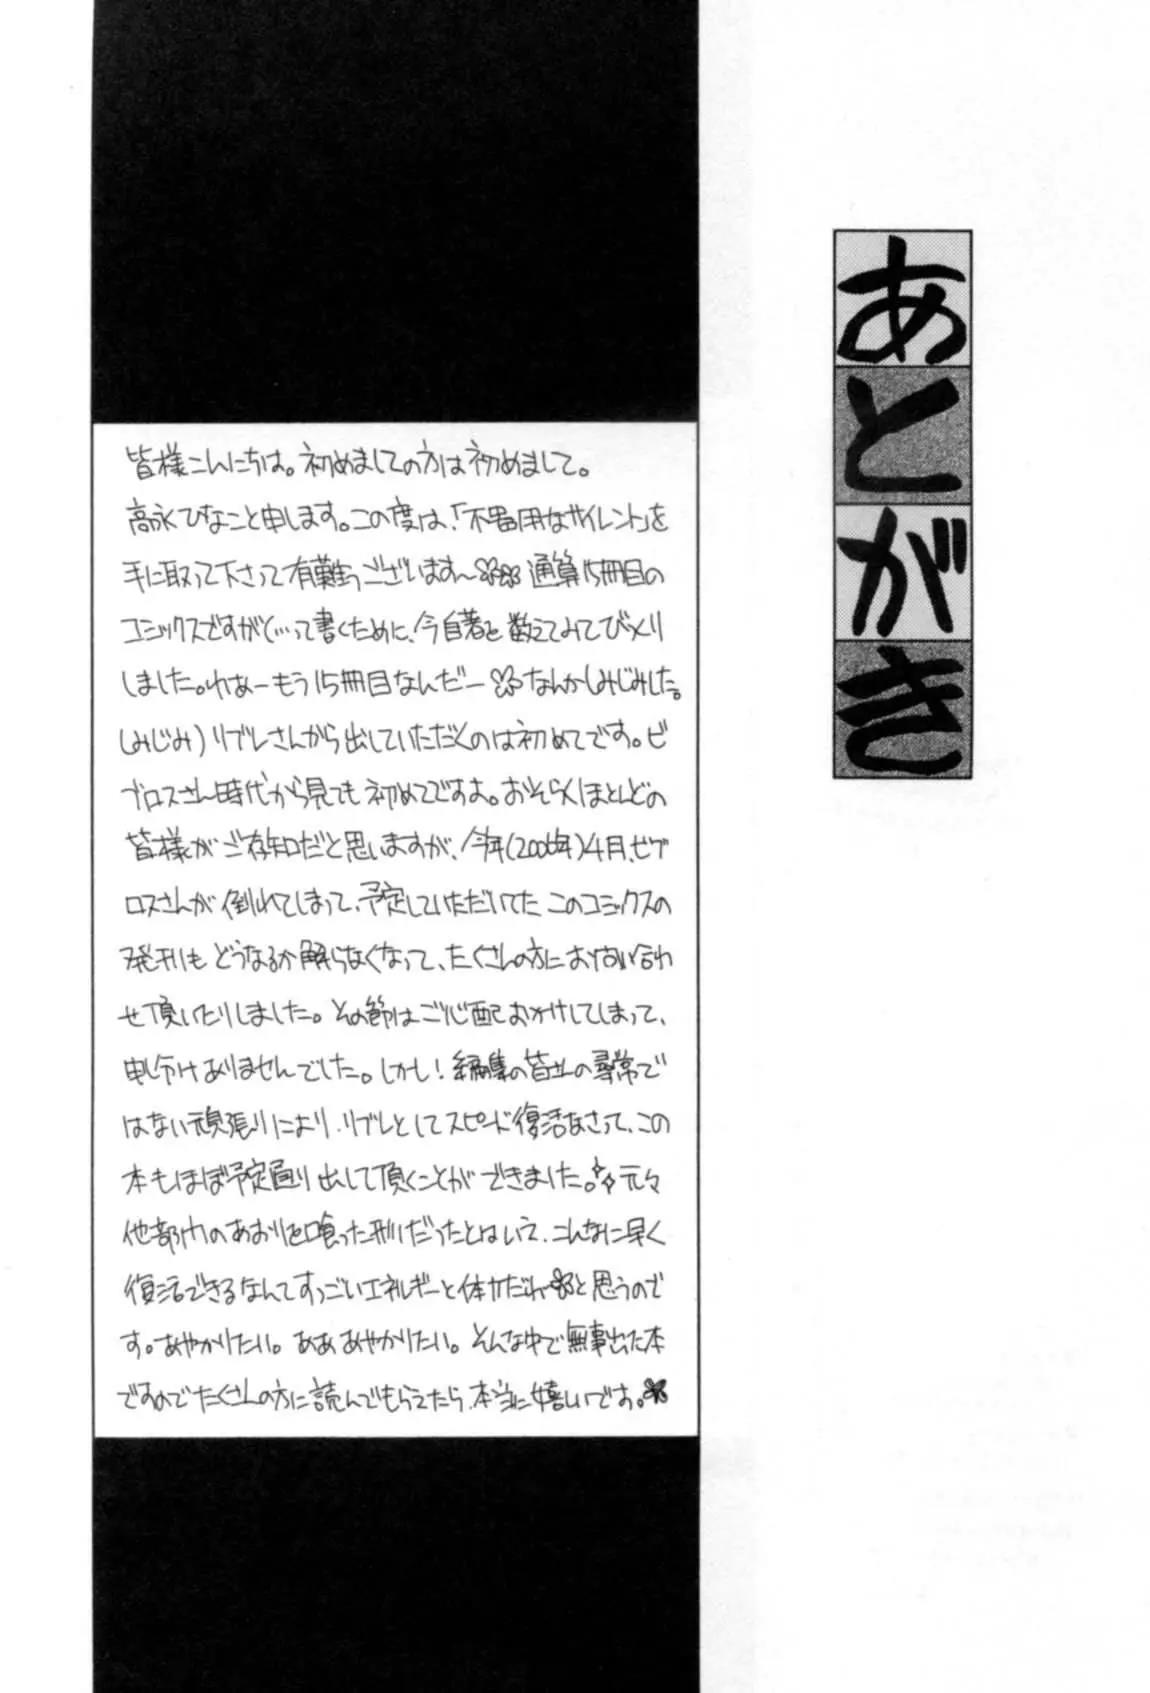 あとがき
皆様こんにちは。初めましての方は初めまして。
高永ひなこと申します。この度は、「不器用なサイレント」を
手に取って下さって有難うございます〜 通算15冊目の
コミックスですが(…って書くために、今自著を数えてみてびっくり
しました。わあーもう15冊目なんだー なんかしみじみした。
しみじみ)リブレさんから出していただくのは初めてです。ビ
ブロスさん時代から見ても初めてですよ。おそらくほとんどの
皆様がご存知だと思いますが、今年(2006年)4月、ビブ
ロスさんが倒れてしまって、予定していただいてたこのコミックスの
発刊もどうなるか解らなくなって、たくさんの方にお問い合わ
せ頂いたりしました。その節はご心配おかけしてしまって、
申し分けありませんでした。しかし!編集の皆立の尋常で
はない頑張りにより、リブレとしてスピード復活なさって、この
本もほぼ予定通り出して頂くことができました。元々
他部門のあおりを喰った形だったとはいえ、こんなに早く
復活できるなんてすっごいエネルギーと体力だわと思うので
す。あやかりたい。あああやかりたい。そんな中で無事出た本
ですのでたくさんの方に読んでもらえたら、本当に嬉しいです。